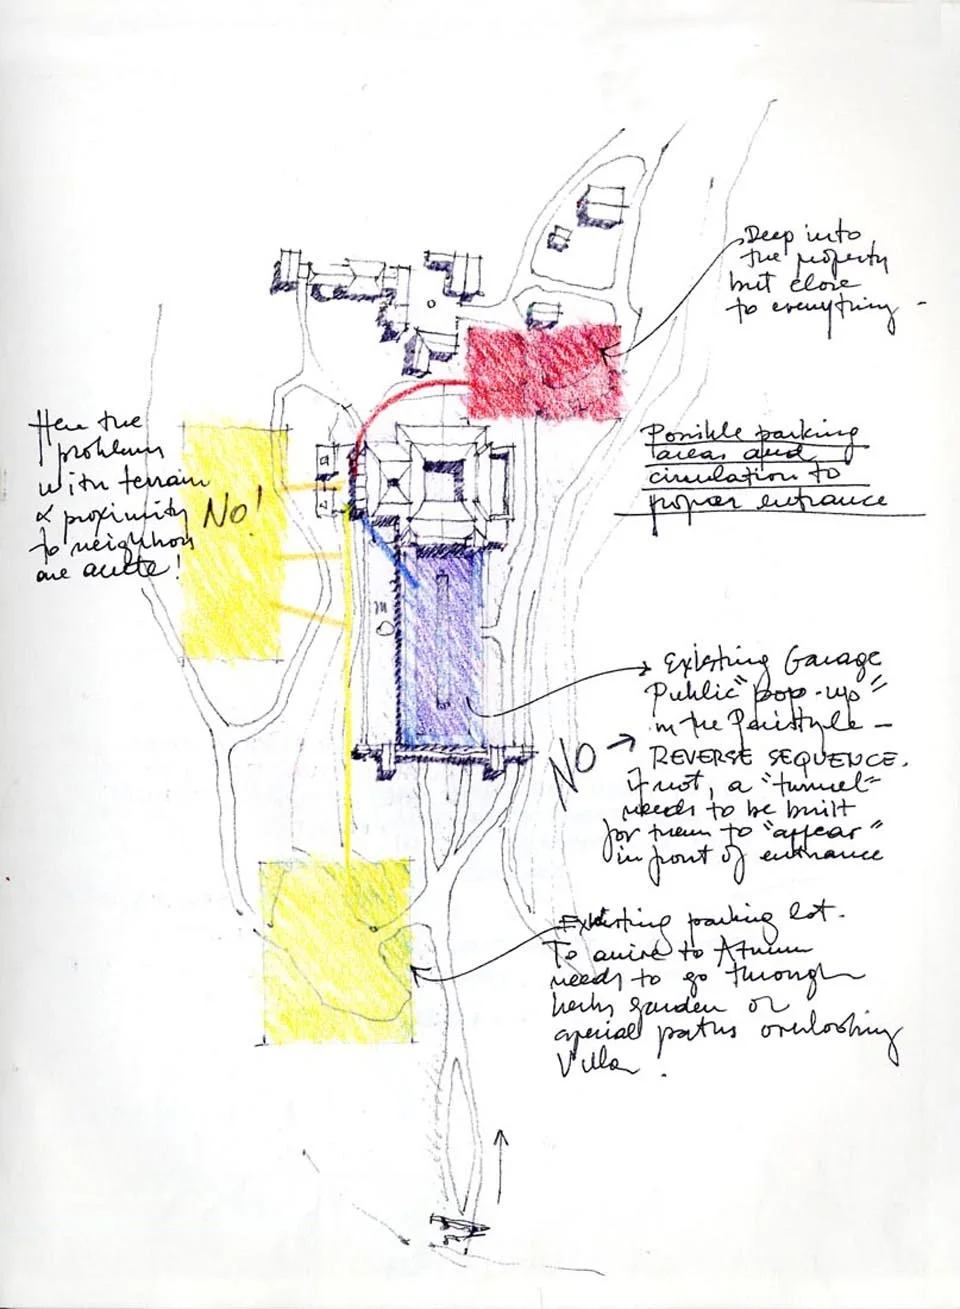 Deep into
the property
but close
to everything -
Here the
problems
with terrain
& proximity
to neighbors
are acute!
No!
Possible parking
areas and
circulation to
proper entrance
Existing Garage
Public "pop-up"
in the Peristyle -
NO
REVERSE SEQUENCE.
if not, a "tunnel"
needs to be built
for them to "appear"
in front of entrance
Existing parking lot.
To arrive to Atrium
needs to go through
herbs garden or
special paths overlooking
Villa.